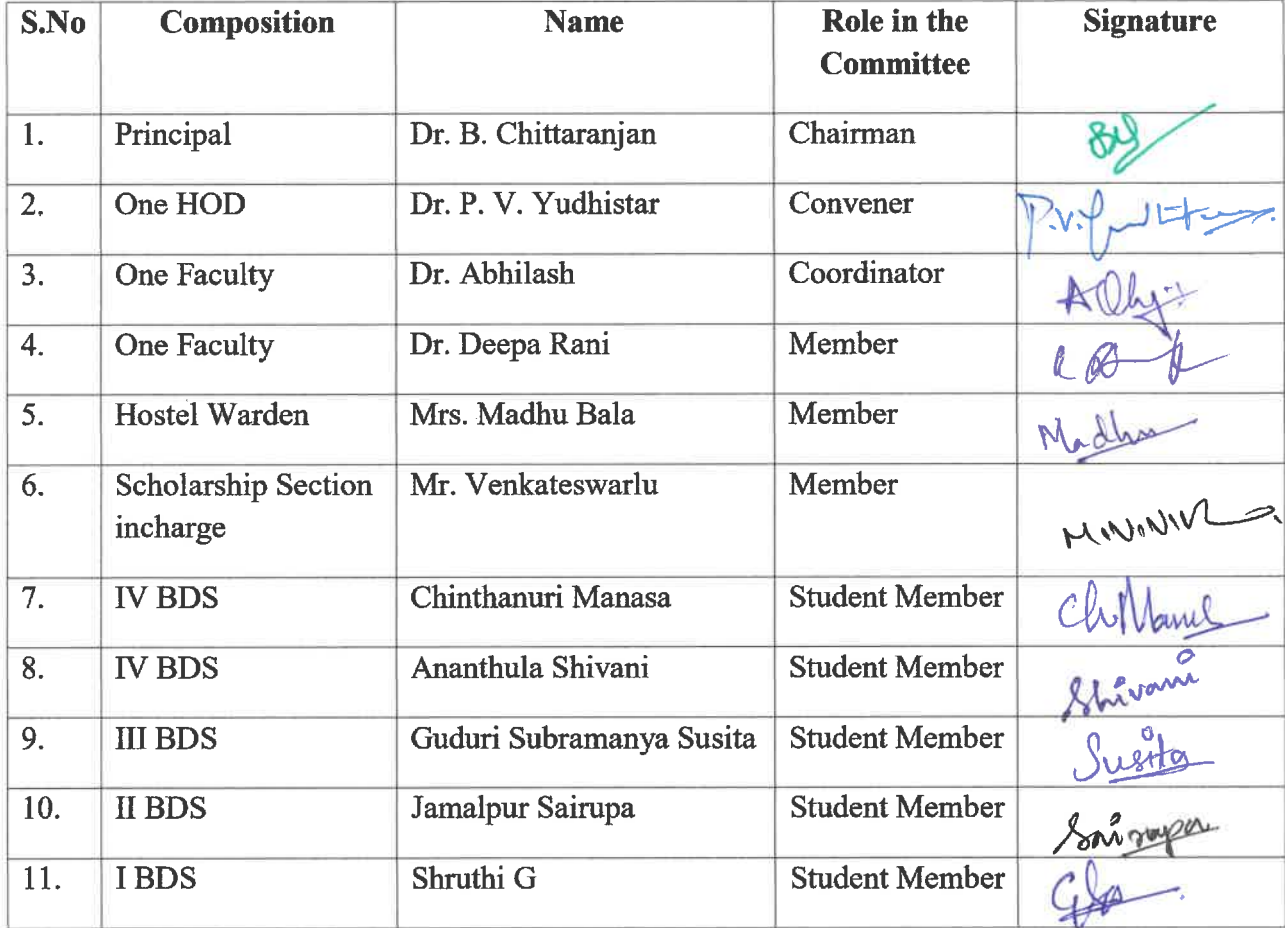 S.No Composition Name Role in the Committee Signature
1. Principal Dr. B. Chittaranjan Chairman
2. One HOD Dr. P. V. Yudhistar Convener
3. One Faculty Dr. Abhilash Coordinator
4. One Faculty Dr. Deepa Rani Member
5. Hostel Warden Mrs. Madhu Bala Member Madhu
6. Scholarship Section incharge Mr. Venkateswarlu Member
7. IV BDS Chinthanuri Manasa Student Member
8. IV BDS Ananthula Shivani Student Member Shivani
9. III BDS Guduri Subramanya Susita Student Member Susita
10. II BDS Jamalpur Sairupa Student Member Sairupa
11. I BDS Shruthi G Student Member